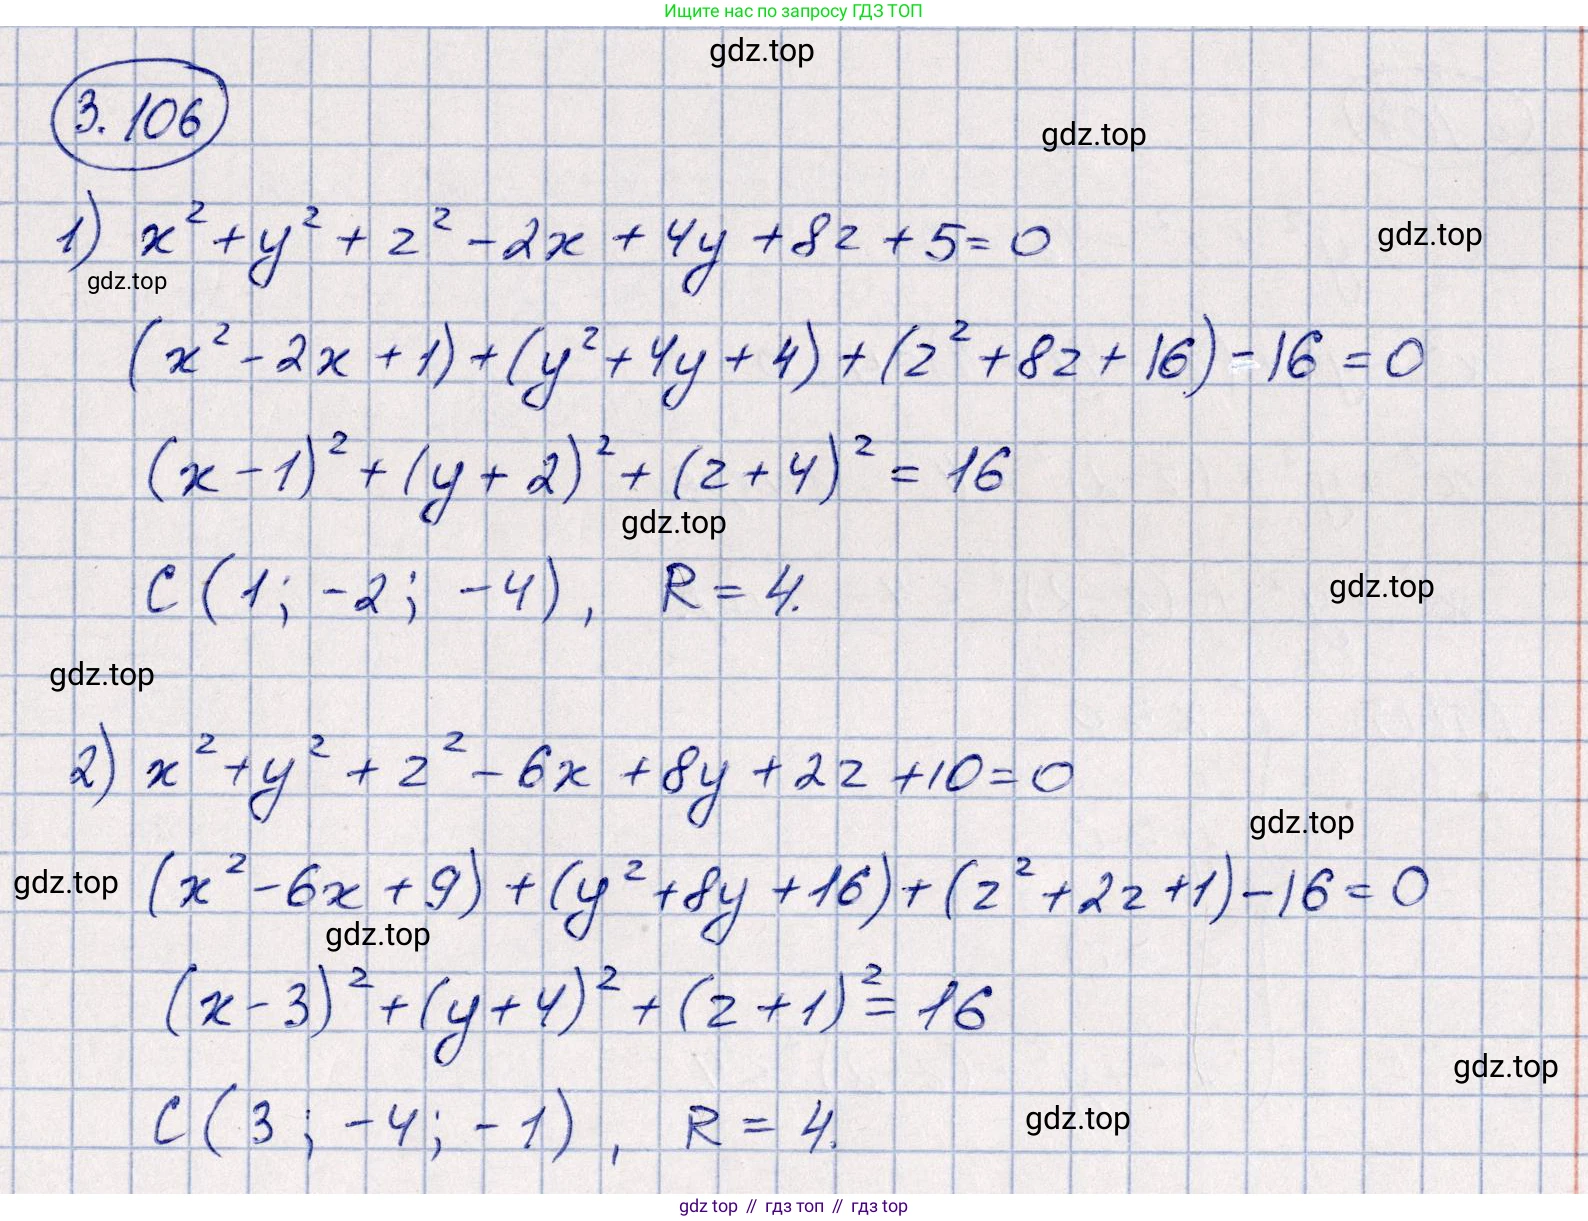 Ищите нас по запросу ГДЗ ТОП
gdz.top
3.106
gdz.top
1) x² + y² + z² - 2x + 4y + 8z + 5 = 0
gdz.top
gdz.top
(x² - 2x + 1) + (y² + 4y + 4) + (z² + 8z + 16) - 16 = 0
(x - 1)² + (y + 2)² + (z + 4)² = 16
gdz.top
C (1; -2; -4), R = 4.
gdz.top
gdz.top
2) x² + y² + z² - 6x + 8y + 2z + 10 = 0
gdz.top
gdz.top
(x² - 6x + 9) + (y² + 8y + 16) + (z² + 2z + 1) - 16 = 0
gdz.top
(x - 3)² + (y + 4)² + (z + 1)² = 16
gdz.top
C (3; -4; -1), R = 4.
gdz.top
gdz top // гдз топ // гдз top